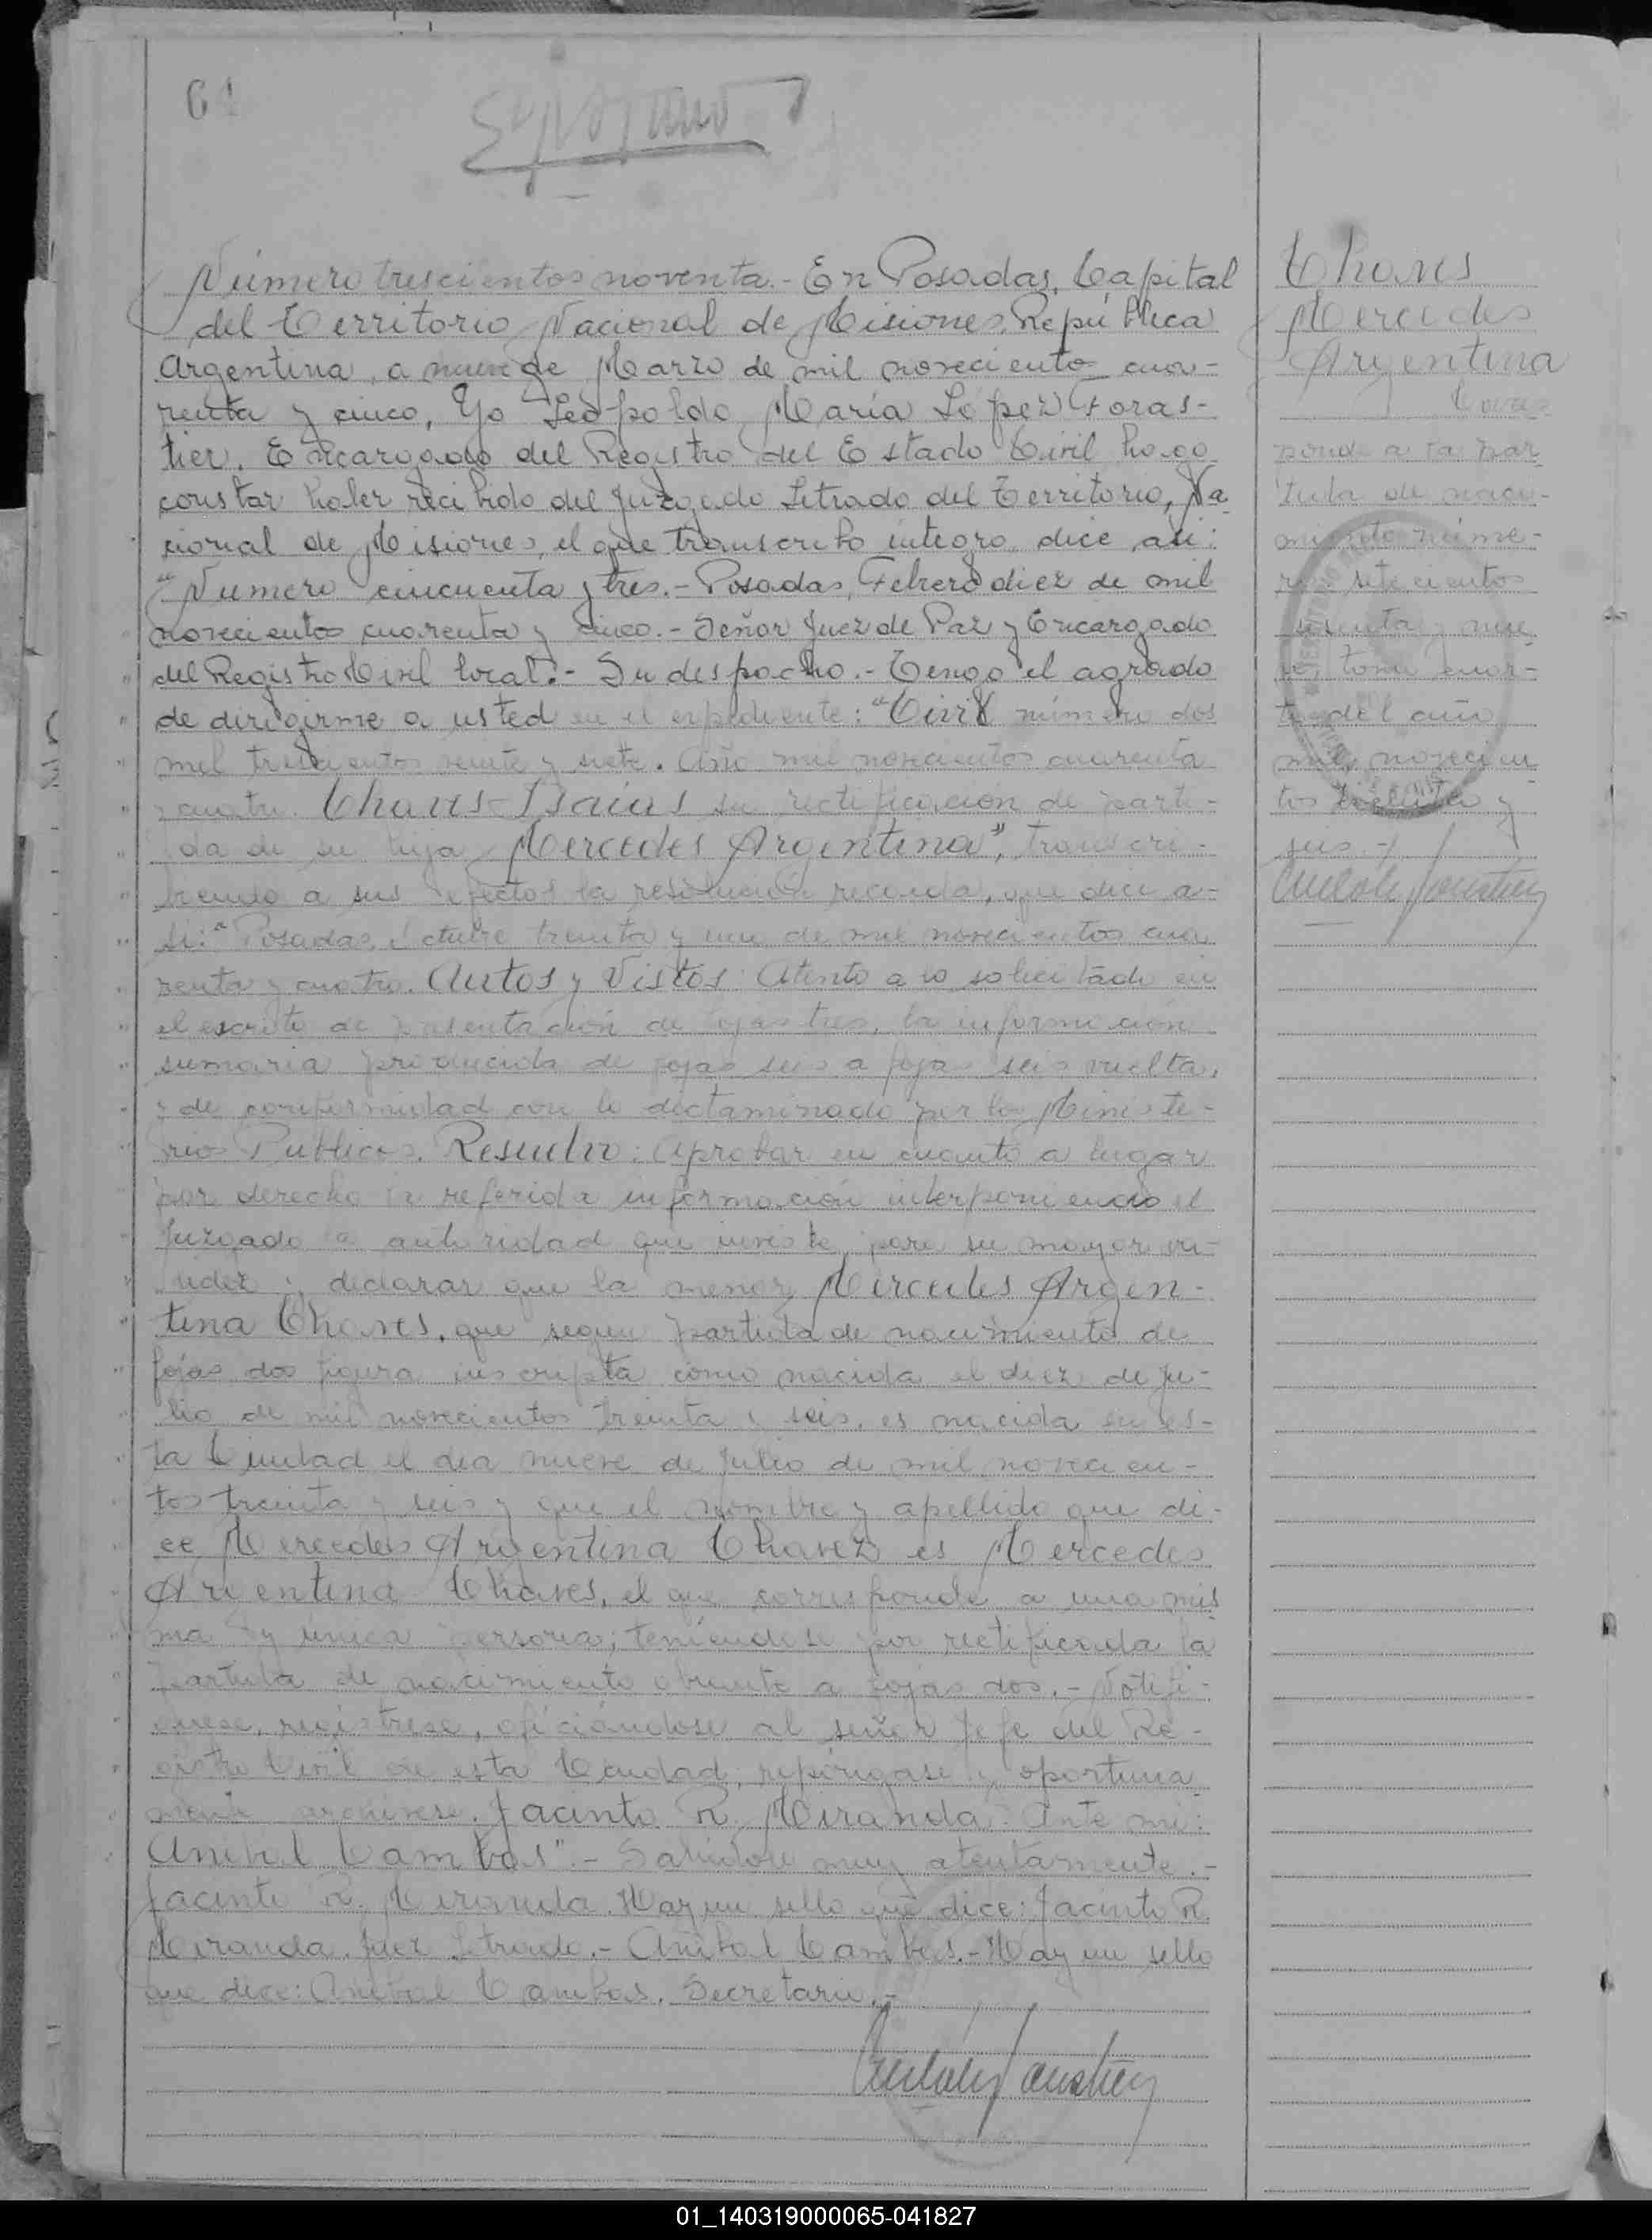 64
Número trescientos noventa.- En Posadas, Capital
del Territorio Nacional de Misiones, República
Argentina, a nueve de Marzo de mil novecientos cua-
renta y cinco, Yo Leopoldo María López Foras-
tier, Encargado del Registro del Estado Civil hago
constar haber recibido del Juzgado Letrado del Territorio, Na
cional de Misiones, el que transcrito íntegro dice así:
"Numero cincuenta y tres.- Posadas, Febrero diez de mil
novecientos cuarenta y cinco.- Señor Juez de Paz y Encargado
del Registro Civil local.- Su despacho.- Tengo el agrado
de dirigirme a usted en el expediente: "Civil número dos
mil trescientos veinte y siete. Año mil novecientos cuarenta
y cuatro. Chaves Isaias su rectificación de parti-
da de su hija Mercedes Argentina", transcri-
biendo a sus efectos la resolución recaida, que dice a-
si: "Posadas, Octubre treinta y uno de mil novecientos cua
renta y cuatro. Autos y Vistos: Atento a lo solicitado en
el escrito de presentación de fojas tres, la información
sumaria producida de fojas seis a fojas seis vuelta,
y de conformidad con lo dictaminado por los Ministe-
rios Publicos. Resuelvo: Aprobar en cuanto a lugar
por derecho la referida información interponiendo el
Juzgado la autoridad que inviste para su mayor va-
lidez y declarar que la menor Mercedes Argen-
tina Chaves, que segun partida de nacimiento de
fojas dos figura inscripta como nacida el diez de Ju-
lio de mil novecientos treinta y seis, es nacida en es-
ta Ciudad el dia nueve de Julio de mil novecien-
tos treinta y seis y que el nombre y apellido que di-
ce Mercedes Argentina Chavez es Mercedes
Argentina Chaves, el que corresponde a una mis
ma y única persona; teniendose por rectificada la
partida de nacimiento obrante a fojas dos.- Notifi-
quese, registrese, oficiándose al señor Jefe del Re-
gistro Civil de esta Ciudad, repóngase y oportuna
mente archivese. Jacinto R. Miranda. Ante mi:
Anibal Cambas".- Salúdole muy atentamente.-
Jacinto R. Miranda. Hay un sello que dice: Jacinto R.
Miranda. Juez Letrado.- Anibal Cambas.- Hay un sello
que dice: Anibal Cambas. Secretario.-
Chaves
Mercedes
Argentina
Corres
ponde a la par
tida de naci-
miento núme-
ro setecientos
sesenta y nue
ve, tomo cuar-
to del año
mil novecien
tos treinta y
seis.-
01_140319000065-041827